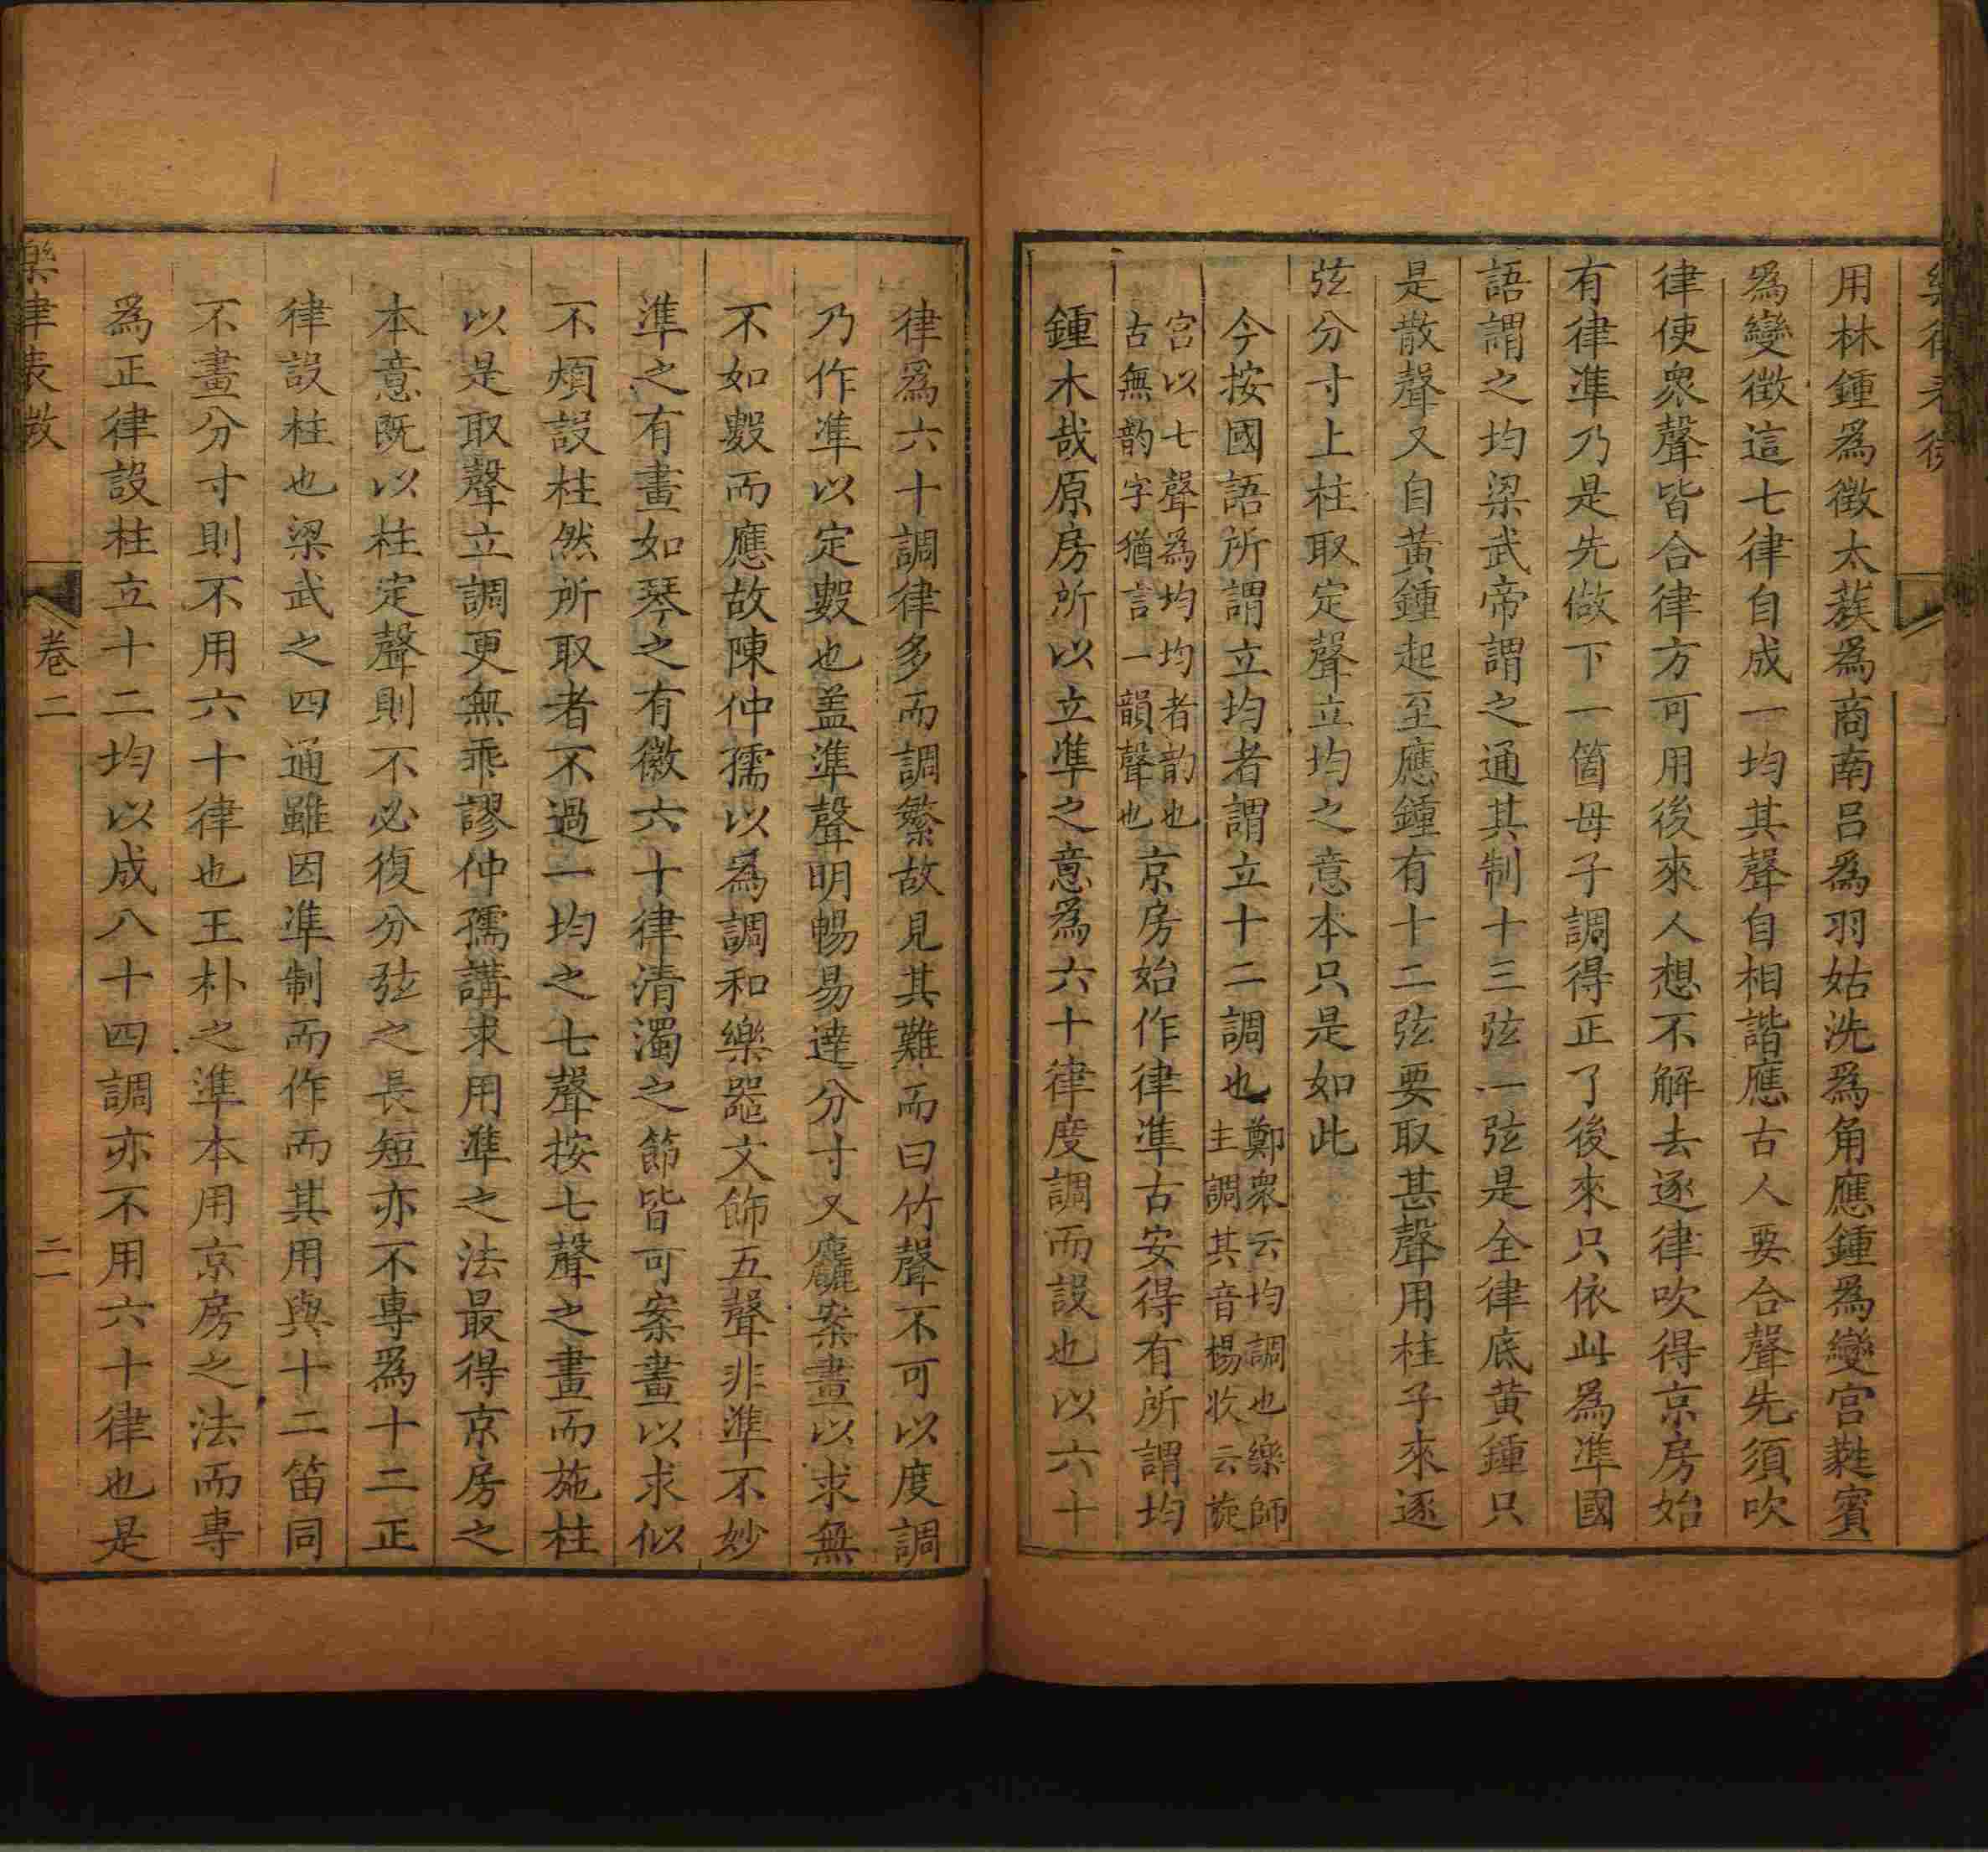 用林鍾爲徵太蔟爲商南呂爲羽姑洗爲角應鍾爲變宮蕤賓
爲變徵這七律自成一均其聲自相諧應古人要合聲先須吹
律使衆聲皆合律方可用後來人想不解去逐律吹得京房始
有律準乃是先做下一箇母子調得正了後來只依此爲準國
語謂之均梁武帝謂之通其制十三弦一弦是全律底黃鍾只
是散聲又自黃鍾起至應鍾有十二弦要取甚聲用柱子來逐
弦分寸上柱取定聲立均之意本只是如此
今按國語所謂立均者謂立十二調也鄭衆云均調也樂師主調其音楊收云旋
宮以七聲爲均均者韵也古無韵字猶言一韻聲也京房始作律準古安得有所謂均
鍾木哉原房所以立準之意爲六十律度調而設也以六十
律爲六十調律多而調繁故見其難而曰竹聲不可以度調
乃作準以定數也盖準聲明暢易達分寸又麤案畫以求無
不如數而應故陳仲孺以爲調和樂器文飾五聲非準不妙
準之有畫如琴之有徽六十律清濁之節皆可案畫以求似
不煩設柱然所取者不過一均之七聲按七聲之畫而施柱
以是取聲立調更無乖謬仲孺講求用準之法最得京房之
本意既以柱定聲則不必復分弦之長短亦不專爲十二正
律設柱也梁武之四通雖因準制而作而其用與十二笛同
不畫分寸則不用六十律也王朴之準本用京房之法而專
爲正律設柱立十二均以成八十四調亦不用六十律也是
樂律表微
卷二
二一